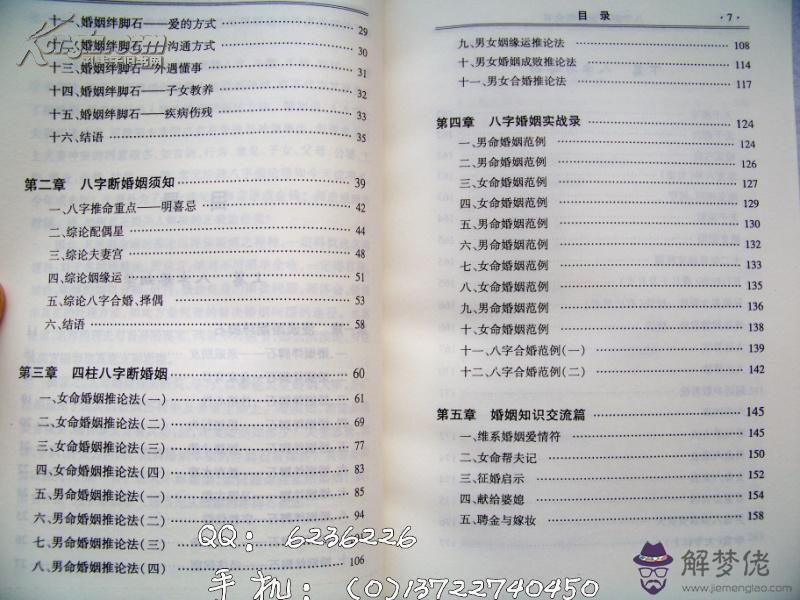 十一、婚姻绊脚石——爱的方式 29
十二、婚姻绊脚石——沟通方式 30
十三、婚姻绊脚石—外遇懂事 31
十四、婚姻绊脚石——子女教养 32
十五、婚姻绊脚石——疾病伤残 33
十六、结语 35
第二章 八字断婚姻须知 39
一、八字推命重点—明喜忌 42
二、综论配偶星 44
三、综论夫妻宫 48
四、综论姻缘运 51
五、综论八字合婚、择偶 53
六、结语 58
第三章 四柱八字断婚姻 60
一、女命婚姻推论法(一) 61
二、女命婚姻推论法(二) 69
三、女命婚姻推论法(三) 77
四、女命婚姻推论法(四) 83
五、男命婚姻推论法(一) 85
六、男命婚姻推论法(二) 94
七、男命婚姻推论法(三)
八、男命婚姻推论法(四) 106
目 录 ·7·
九、男女姻缘运推论法 108
十、男女婚姻成败推论法 114
十一、男女合婚推论法 117
第四章 八字婚姻实战录 124
一、男命婚姻范例 124
二、男命婚姻范例 126
三、女命婚姻范例 127
四、女命婚姻范例 129
五、男命婚姻范例 130
六、男命婚姻范例 132
七、女命婚姻范例 133
八、女命婚姻范例 135
九、男命婚姻范例 136
十、女命婚姻范例 138
十一、八字合婚范例(一) 139
十二、八字合婚范例(二) 142
第五章 婚姻知识交流篇 145
一、维系婚姻爱情符 145
二、女命帮夫记 150
三、征婚启示 152
四、献给婆媳 154
五、聘金与嫁妆 158
QQ: 6236226
手机: (0)13722740450
解梦佬
www.jiemenglao.com